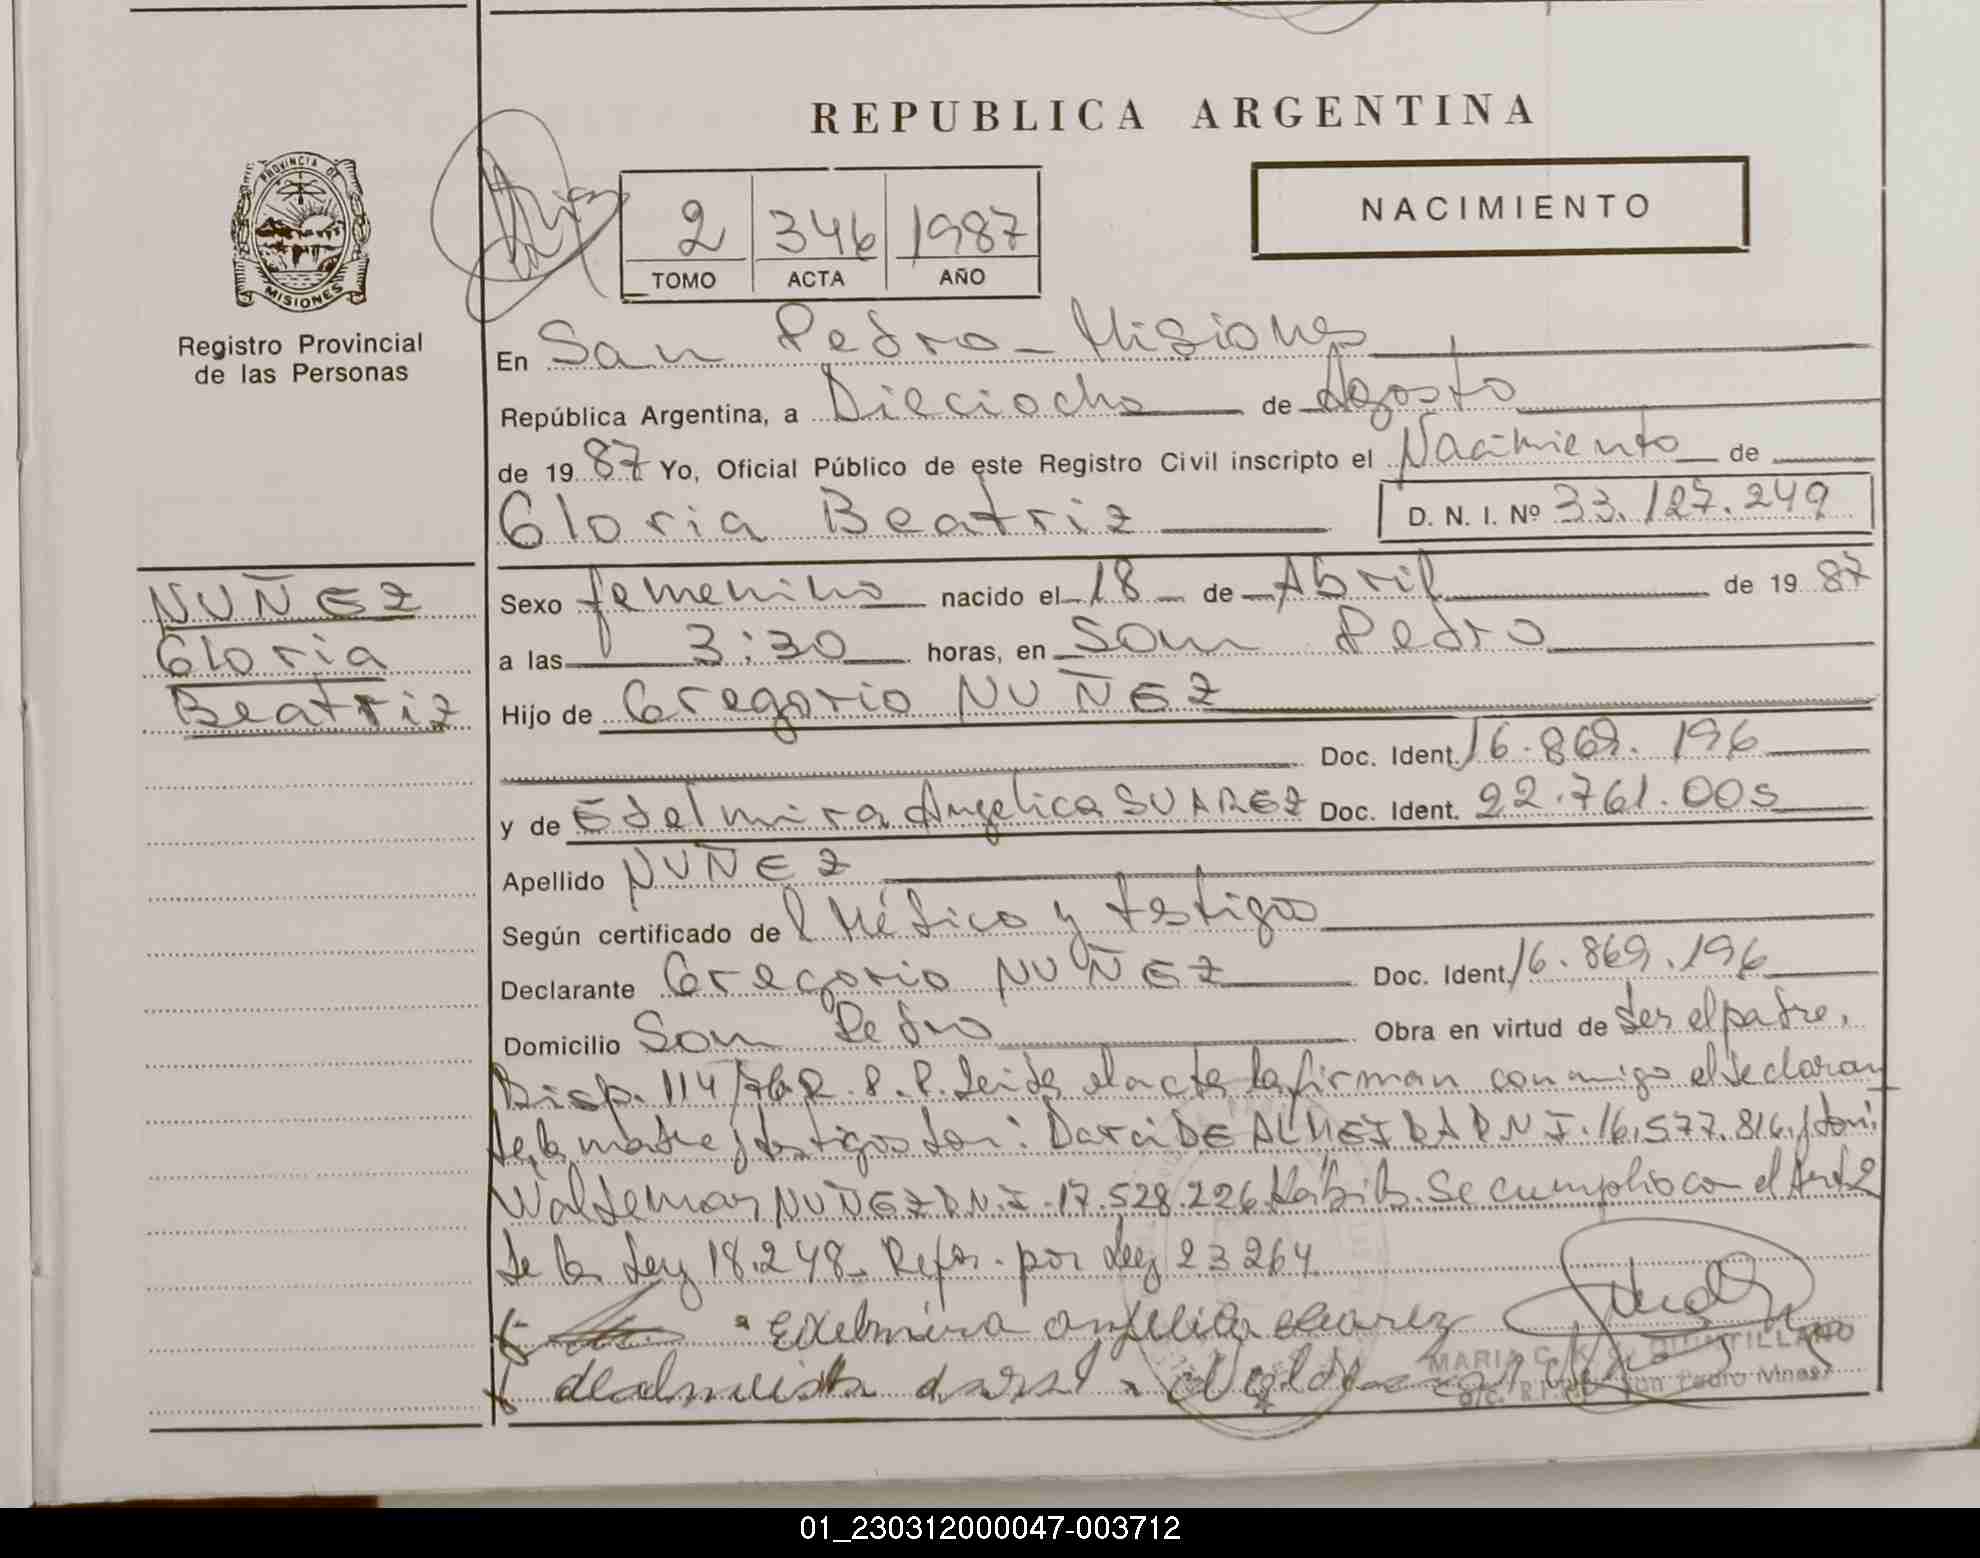 REPUBLICA ARGENTINA
PROVINCIA DE
MISIONES
Registro Provincial
de las Personas
2 346 1987
TOMO ACTA AÑO
NACIMIENTO
En San Pedro - Misiones
República Argentina, a Dieciocho de Agosto
de 19 87 Yo, Oficial Público de este Registro Civil inscripto el Nacimiento de
Gloria Beatriz D. N. I. Nº 33.127.249
NUÑEZ
Gloria
Beatriz
Sexo femenino nacido el 18 de Abril de 19 87
a las 3:30 horas, en San Pedro
Hijo de Gregorio NUÑEZ
Doc. Ident. 16.869.196
y de Edelmira Angelica SUAREZ Doc. Ident. 22.761.005
Apellido NUÑEZ
Según certificado de l Médico y testigos
Declarante Gregorio NUÑEZ Doc. Ident. 16.869.196
Domicilio San Pedro Obra en virtud de ser el padre.
Disp. 114/76 R.P.P. Leida el acta la firman conmigo el declaran
te, la madre y testigos son: Darci DE ALMEIDA D.N.I. 16.577.816 y
Waldemar NUÑEZ D.N.I. 17.528.226 Se cumplio con el Art 2
de la Ley 18.248 Refor. por Ley 23264
Edelmira angelica suarez
MARIA C. K. QUINTILLANO
San Pedro Mnes.
01_230312000047-003712